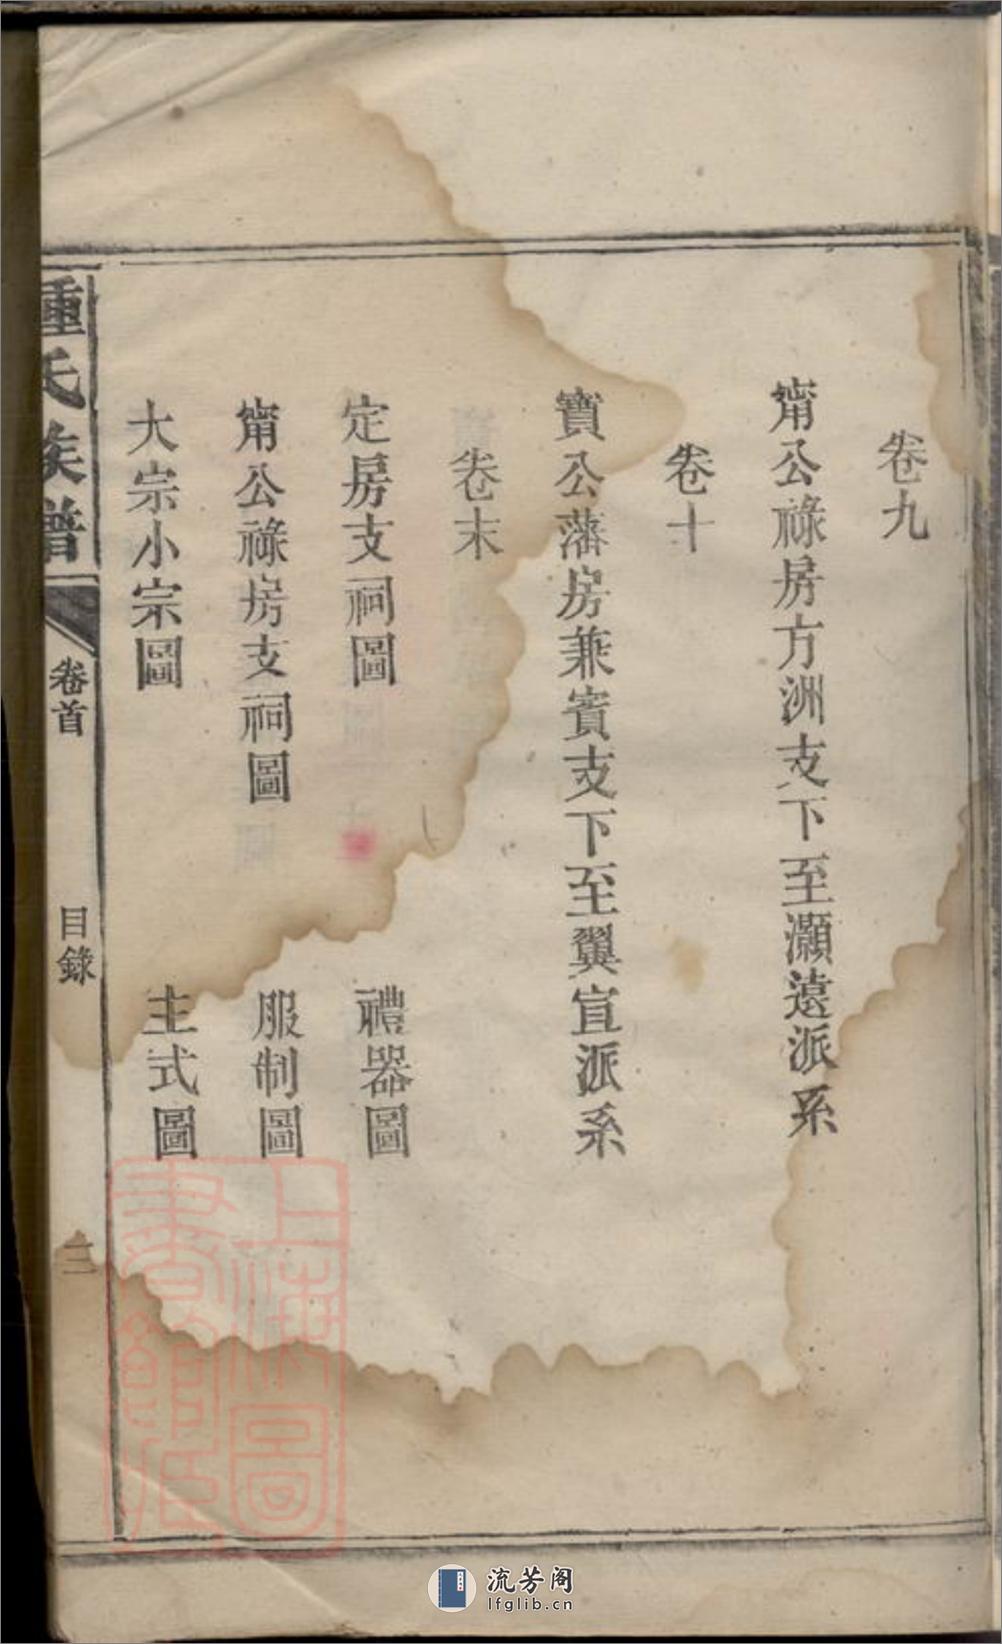 卷九
甯公祿房方洲支下至灝遠派系
卷十
寶公藩房兼賓支下至翼宣派系
卷末
定房支祠圖 禮器圖
甯公祿房支祠圖 服制圖
大宗小宗圖 主式圖
氏族譜
卷首
目錄
二
上海圖書館藏
流芳阁
lfglib.cn